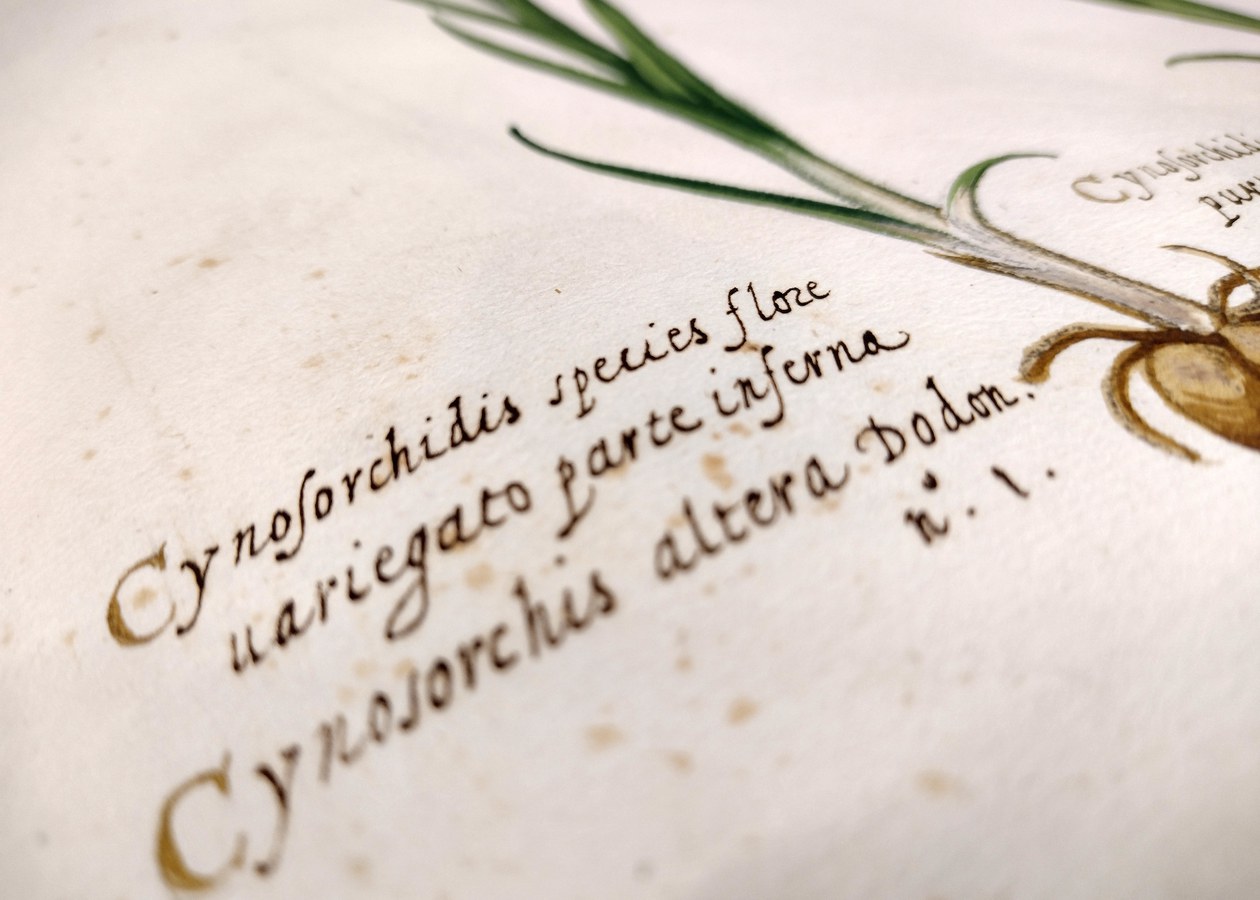 Cynoſorchidis species flore
uariegato parte inferna
Cynosorchis altera Dodon.
n°. 1.